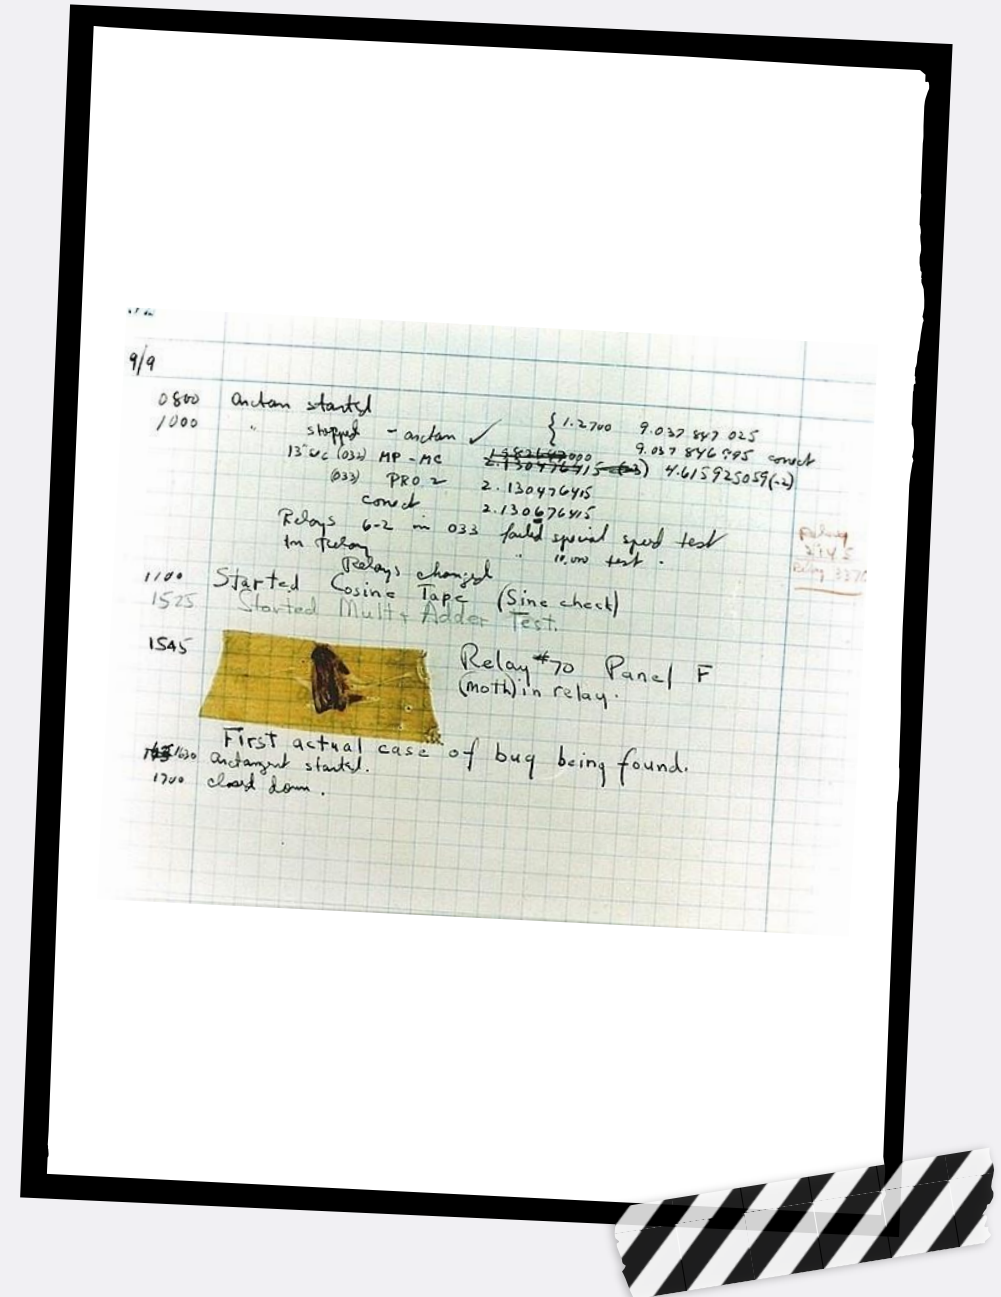 9/9
0800 antan started
1000 " stopped - antan ✓ { 1.2700 9.037 847 025
9.037 846 995 correct
13"uc (032) MP - MC 4.615925059(-2)
(033) PRO 2 2.130476415
correct 2.130676415
Relays 6-2 in 033 failed special speed test
in relay " 10.000 test .
Relays changed
1100 Started Cosine Tape (Sine check)
1525 Started Mult + Adder Test.
1545 Relay #70 Panel F
(moth) in relay.
First actual case of bug being found.
1630 antangent started.
1700 closed down .
Relay
2145
Relay 3370